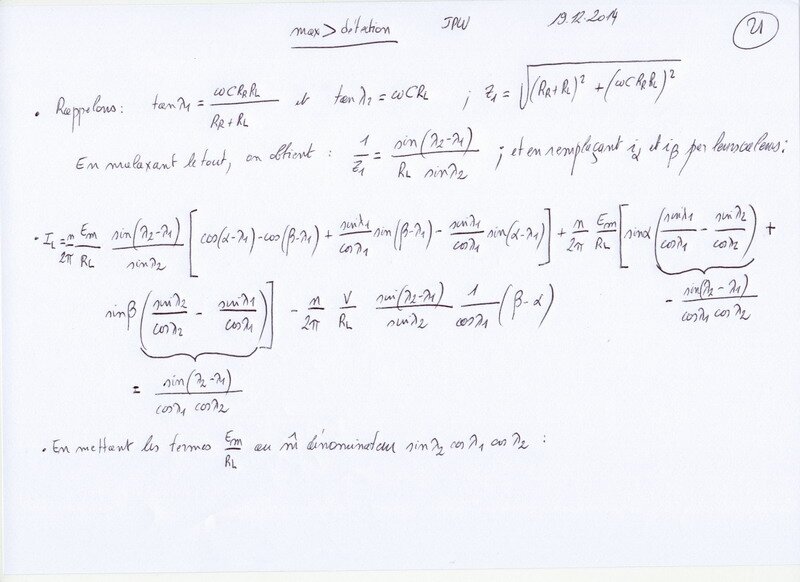 max > détection JPW 19.12.2014 21
• Rappelons: tanλ1 = ωCRRRL / (RR+RL) et tanλ2 = ωCRL ; Z1 = √((RR+RL)² + (ωCRRRL)²)
En malaxant le tout, on obtient : 1/Z1 = sin(λ2-λ1) / (RL sinλ2) ; et en remplaçant iα et iβ par leurs valeurs:
• IL = n/2π Em/RL sin(λ2-λ1)/sinλ2 [cos(α-λ1)-cos(β-λ1) + sinλ1/cosλ1 sin(β-λ1) - sinλ1/cosλ1 sin(α-λ1)] + n/2π Em/RL [sinα (sinλ1/cosλ1 - sinλ2/cosλ2) +
sinβ (sinλ2/cosλ2 - sinλ1/cosλ1)] - n/2π V/RL sin(λ2-λ1)/sinλ2 1/cosλ1 (β-α) - sin(λ2-λ1)/(cosλ1 cosλ2)
= sin(λ2-λ1)/(cosλ1 cosλ2)
• En mettant les termes Em/RL au m̂ dénominateur sinλ2 cosλ1 cosλ2 :